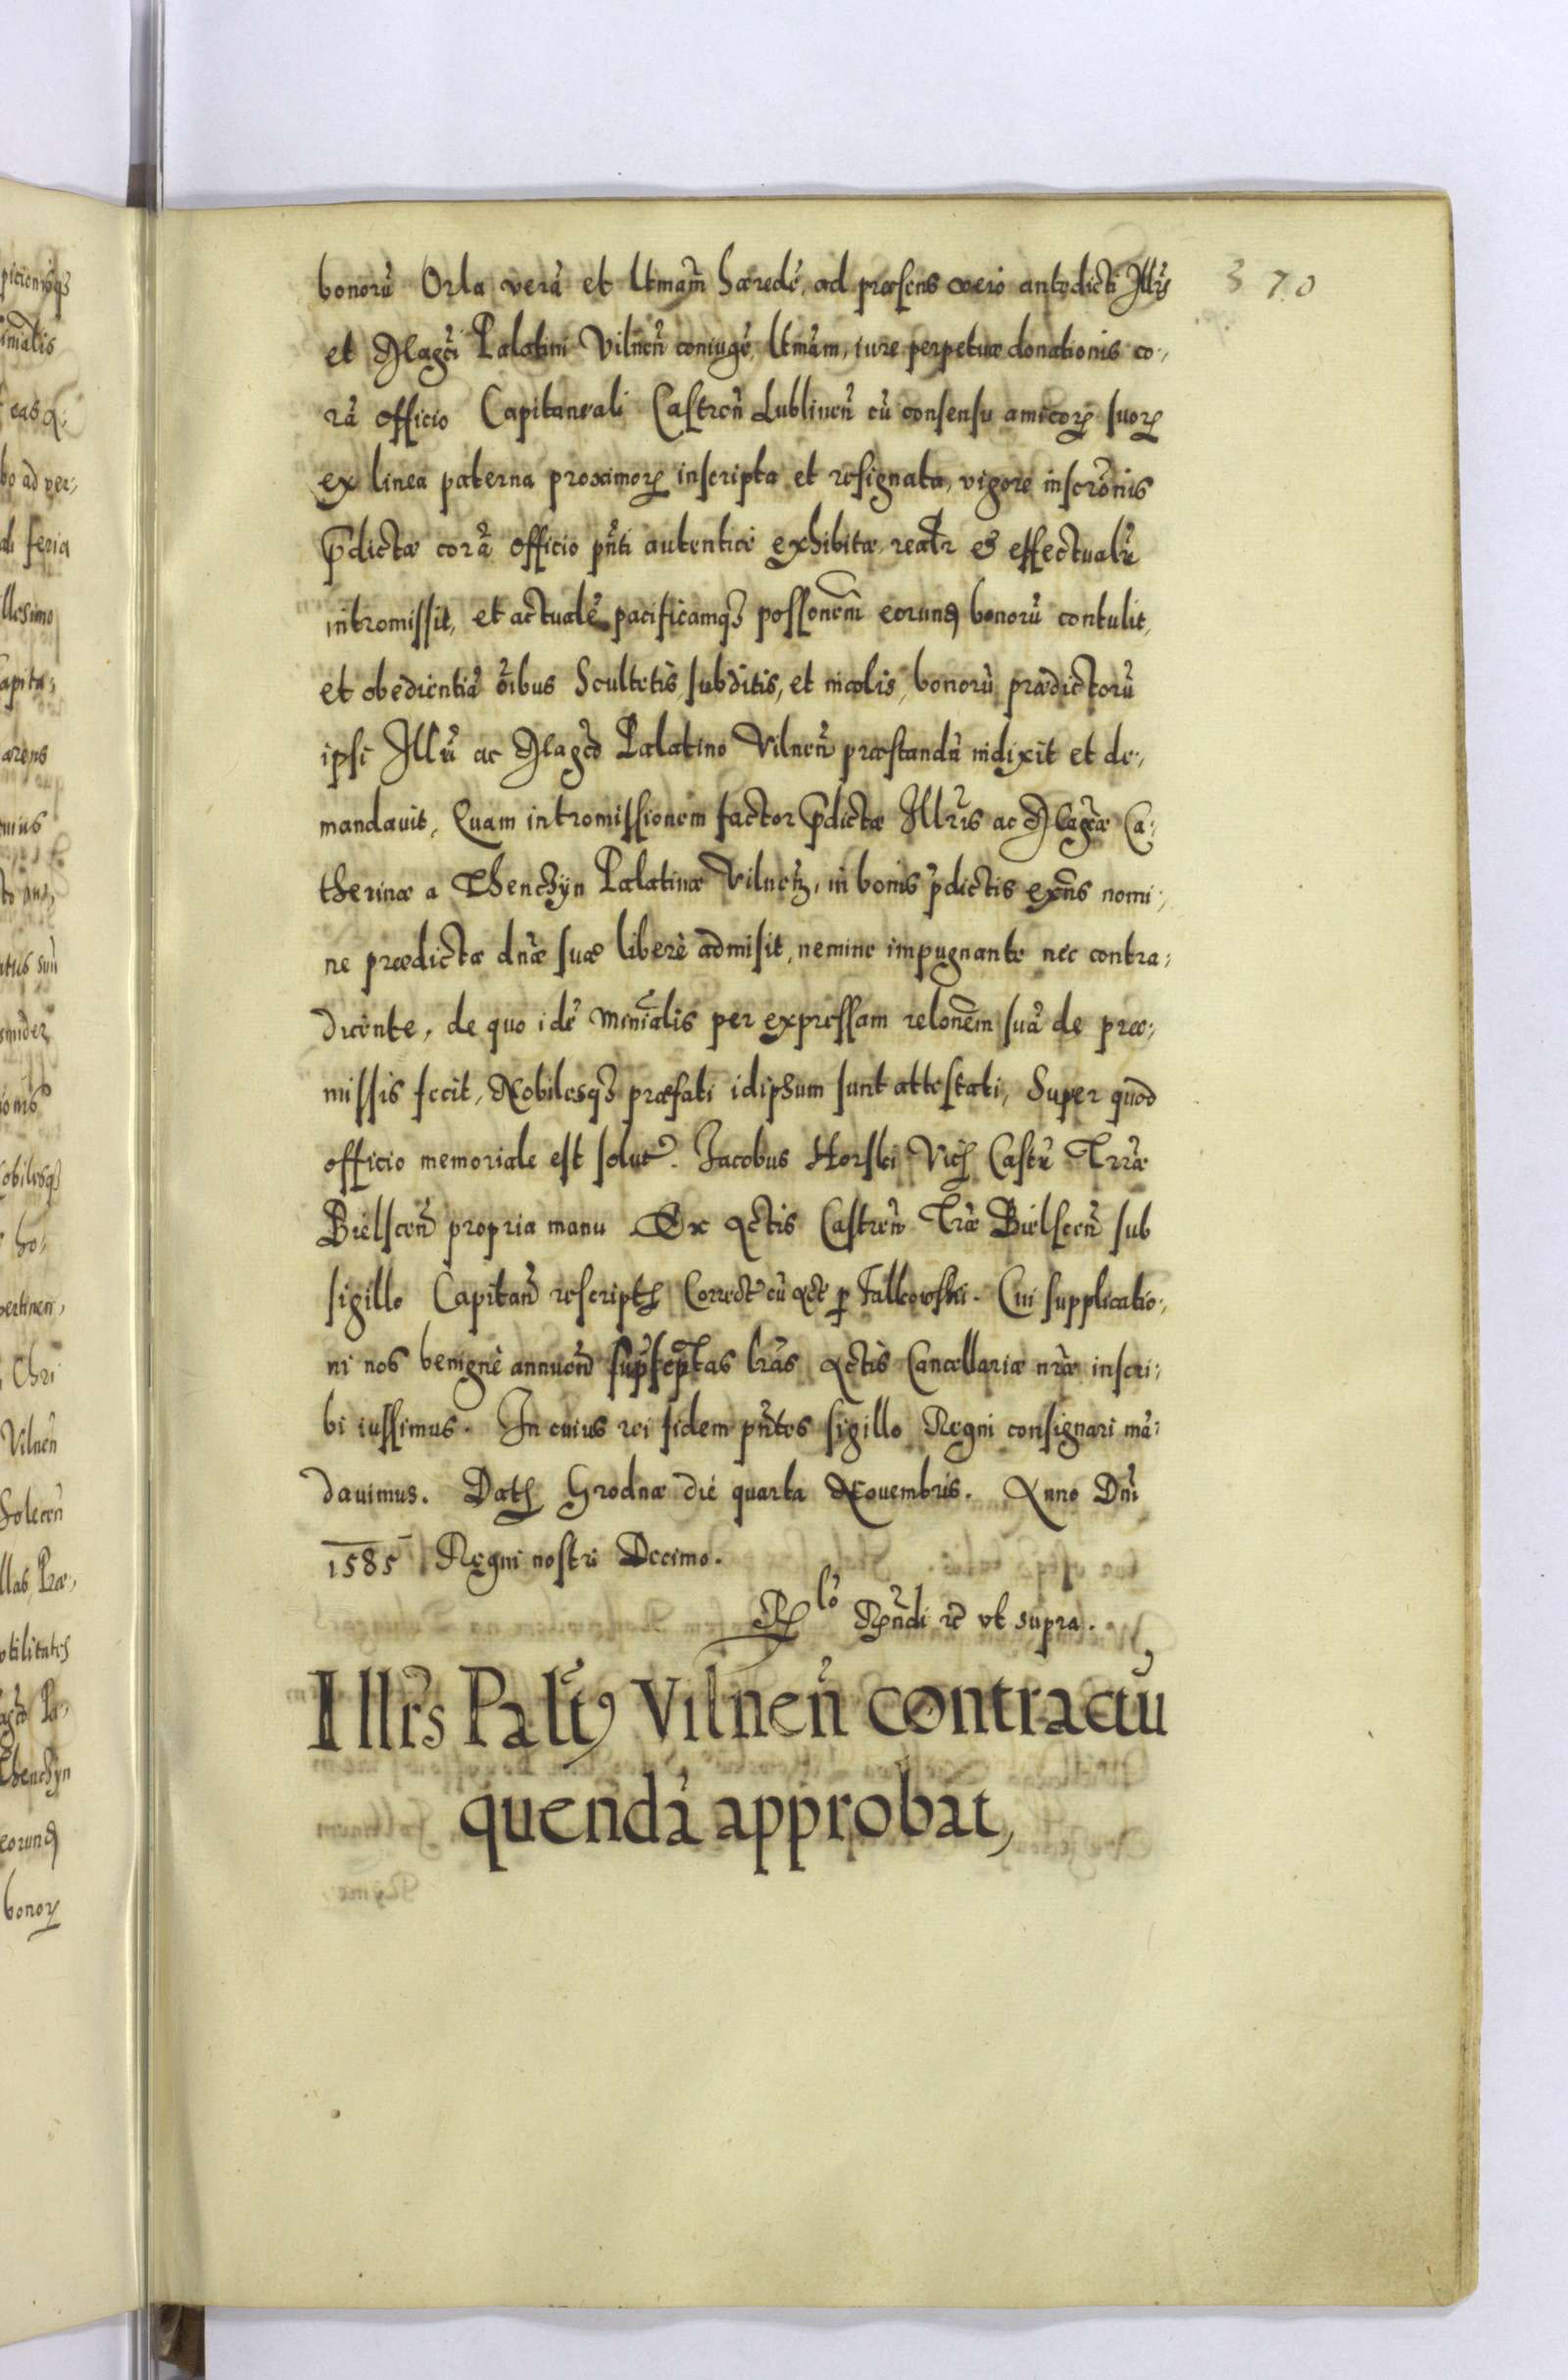 370
bonorũ Orla verã et ltmam̃ hæredẽ, ad præsens vero antedicti Illr̃is
et Magci Palatini Vilnen̄ coniugẽ ltmãm, iure perpetuæ donationis co-
rã officio Capitaneali Castren̄ Lublinen̄ cũ consensu amicorꝝ suorꝝ
ex linea paterna proximorꝝ inscripta et resignata, vigore inscrõnis
p̃dictæ corã officio pñti autentice exhibitæ, realr & effectualr̃
intromissit, et actualẽ pacificamqꝫ possonem̃ eorund bonorũ contulit,
et obedientiã oĩbus Scultetis, subditis, et incolis, bonorũ prædictorũ
ipsi Illr̃i ac Magco Palatino Vilnen̄ præstandã indixit et de-
mandauit, Quam intromissionem factor p̃dictæ Illr̃is ac Magcæ Ca-
therinæ a Thenchyn Palatinæ Vilnen̄, in bonis p̃dictis exñs nomi-
ne prædictæ dñæ suæ liberè admisit, nemine impugnante nec contra-
dicente, de quo idẽ Minĩalis per expressam relonem̃ suã de præ-
missis fecit, Nobilesqꝫ præfati idipsum sunt attestati, Super quod
officio memoriale est solutꝰ. Jacobus Horski Vice Castr̃ Terræ
Bielscen̄ propria manu Ex Actis Castren̄ Tr̃æ Bielscen̄ sub
sigillo Capitan̄ rescriptꝫ Correctꝰ cũ Actꝰ ꝑ Falkowski. Cui supplicatio-
ni nos benignè annuen̄ supscp̃tas lr̃as Actis Cancellariæ nr̃æ inscri-
bi iussimus. In cuius rei fidem pñtes sigillo Regni consignari mã-
dauimus. Datꝫ Grodnæ die quarta Nouembris. Anno Dñi
1585 Regni nostri Decimo.
R̃do vt supra.
Illr̃s Palt̃ Vilnen̄ contractũ
quendã approbat,